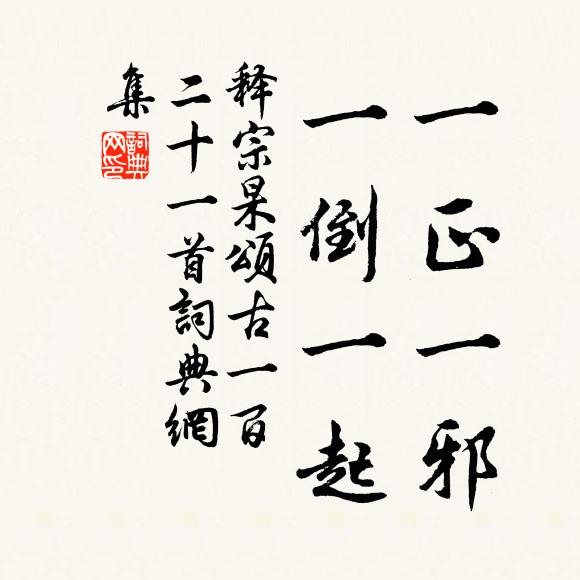 一正一邪
一倒一起
释宗杲頌古一百
二十一首詞典網
集
詞典
网印